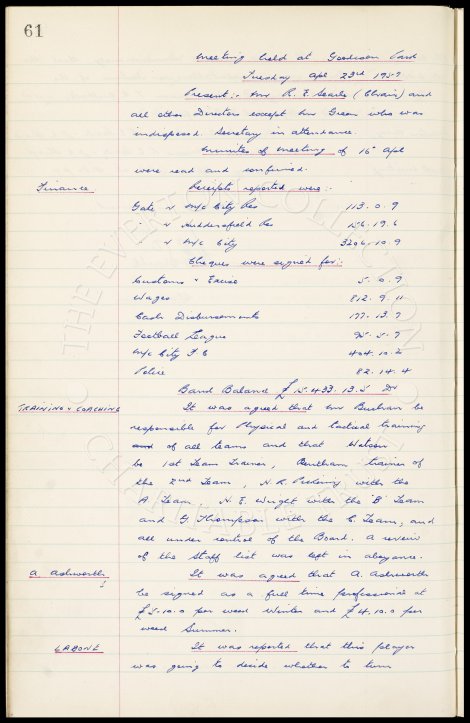 61
Meeting held at Goodison Park
Tuesday Apl 23rd 1957
Present:- Mr R. E. Searle (Chair) and
all other Directors except Mr Green who was
indisposed. Secretary in attendance.
Minutes of meeting of 16th Apl
were read and confirmed.
Finance
Receipts reported were:-
Gate v M/c City Res 113. 0. 9
" v Huddersfield Res 156. 19. 6
" v M/c City 3206. 10. 9
Cheques were signed for:-
Customs & Excise 5. 0. 9
Wages 812. 9. 11
Cash Disbursements 177. 13. 7
Football League 95. 5. 7
M/c City F C 404. 10. 2
Police 82. 14. 4
Bank Balance £15.433. 13. 5 Dr
TRAINING & COACHING
It was agreed that Mr Buchan be
responsible for Physical and tactical training
of all teams and that Watson
be 1st Team Trainer, Bentham, trainer of
the 2nd Team, H. R. Pickering with the
A Team, N. E. Wright with the 'B' Team
and G. Thompson with the C. Team, and
all under control of the Board. A review
of the Staff list was left in abeyance.
A Ashworth
It was agreed that A. Ashworth
be signed as a full time professional at
£5.10.0 per week Winter and £4.10.0 per
week Summer.
LABONE
It was reported that this player
was going to decide whether to turn
THE EVERTON COLLECTION